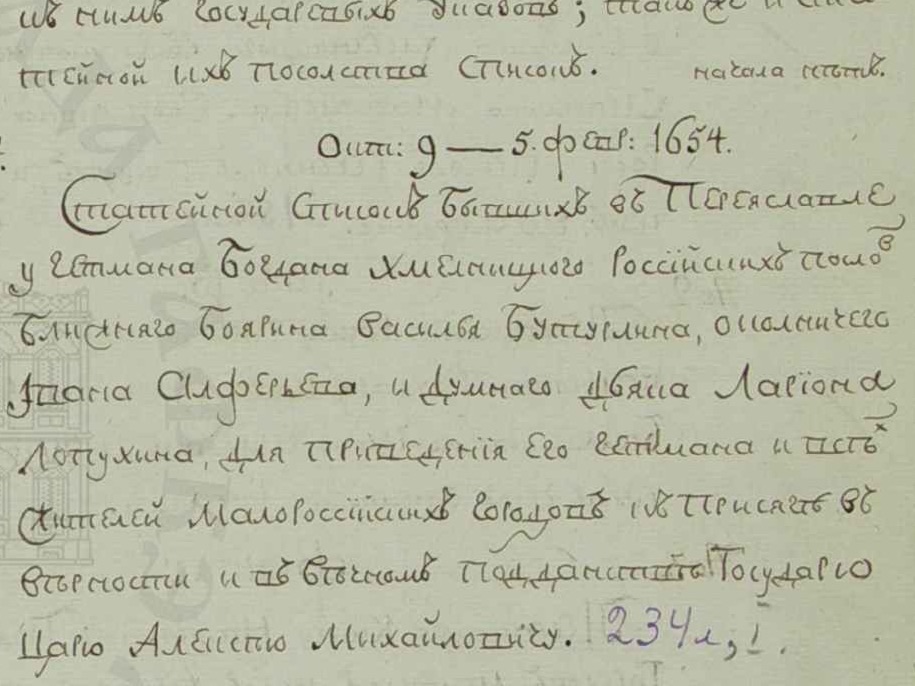 къ нимъ Государевыхъ Указовъ; также и Ста-
тейной ихъ Посольства Списокъ. начала нѣтъ.
Окт: 9 — 5. февр: 1654.
Статейной Списокъ бывшихъ въ Переяславле
у Гетмана Богдана Хмельницкого Россійскихъ Посло
въ
ближняго Боярина Василья Бутурлина, окольничего
Ивана Алферьева, и думнаго дьяка Ларіона
Лопухина, для приведенія Его Гетмана и всѣх
жителей Малороссійскихъ Городовъ къ присягѣ въ
вѣрности и въ вѣчномъ Подданствѣ Государю
Царю Алексѣю Михайловичу. 234 л, I.